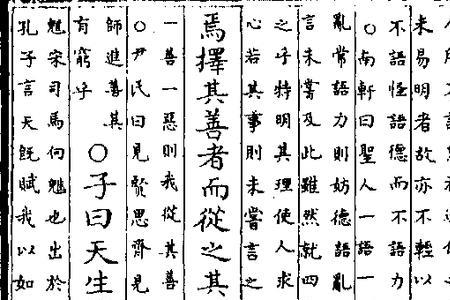 未易明者故亦不輕以
不語怪語德而不語力
○南軒曰聖人一語一
亂常語力則妨德語亂
言未嘗及此雖然就四
之乎特明其理使人求
心若其事則未嘗言之
焉擇其善者而從之其
一善一惡則我從其善
○尹氏曰見賢思齊見
師進善其
有窮乎
○子曰天生
魋宋司馬向魋也出於
孔子言天既賦我以如